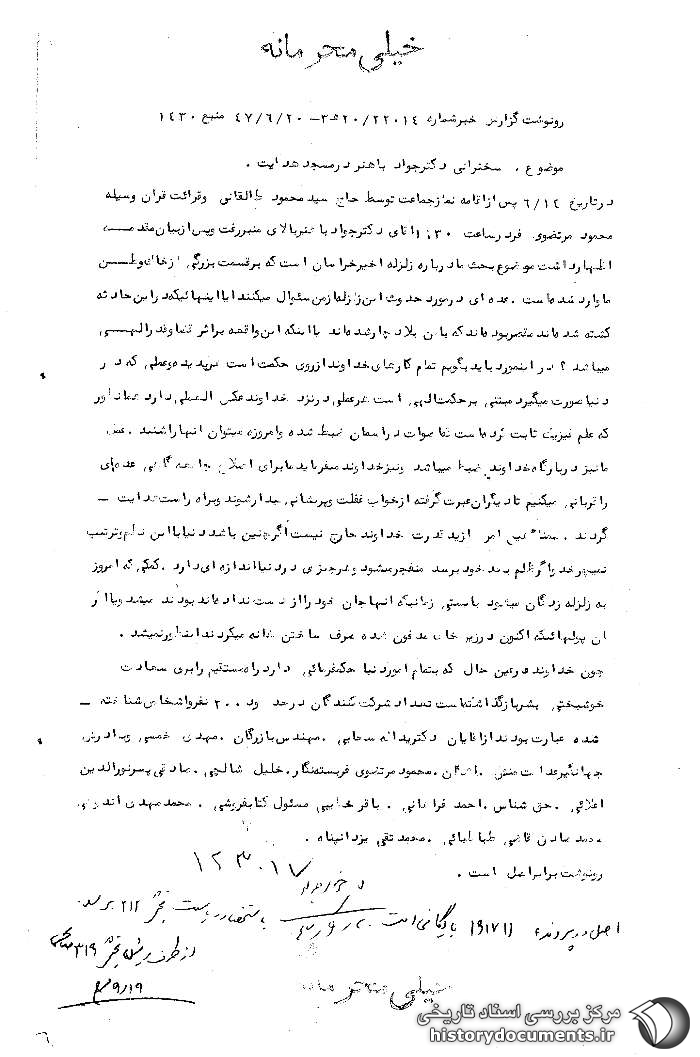 خیلی محرمانه
رونوشت گزارش خبر شماره ۲۰/۲۲۰۱۴ هـ ۳ – ۴۷/۶/۲۰ منبع ۱۴۳۰
موضوع . سخنرانی دکتر جواد باهنر در مسجد هدایت .
در تاریخ ۶/۱۲ پس از اقامه نماز جماعت توسط حاج سید محمود طالقانی و قرائت قران وسیله
محمود مرتضوی فرد ساعت آقای دکتر جواد باهنر بالای منبر رفت و پس از بیان مقدمه
اظهار داشت موضوع بحث ما در باره زلزله اخیر خراسان است که بر قسمت بزرگی از خاک وطن
ما وارد شده است . عده ای در مورد حدوث این زلزله از من سئوال میکنند ایا اینهائیکه در این حادثه
کشته شده اند مقصر بوده اند که باین بلا دچار شده اند یا اینکه این واقعه بر اثر الهی
میباشد ؟ در اینمورد باید بگویم تمام کارهای خداوند از روی حکمت است هر پدیده و عملی که در
دنیا صورت میگیرد مبتنی بر حکمت الهی است هر عملی در نزد خداوند عکس العملی دارد همانطور
که علم فیزیک ثابت کرده است تمام اصوات در اسمان ضبط شده و امروزه میتوان انها را شنید . عمل
ما نیز در بارگاه خداوند ضبط میباشد ونیز خداوند میفرماید ما برای اصلاح جامعه گاهی عده ای
را قربانی میکنیم تا دیگران عبرت گرفته از خواب غفلت و پریشانی بیدار شوند و براه راست هدایت –
گردند . این امر از ید قدرت خداوند خارج نیست اگر چنین باشد دنیا با این نظم و ترتیب
نمیچرخد و اگر ظلم بحد خود برسد منفجر میشود و هر چیزی در دنیا اندازه ای دارد . کمکی که امروز
به زلزله زدگان میشود بایستی زمانیکه انها جان خود را از دست نداده اند بودند میشد و یا اگر
ان پولهائیکه اکنون در زیر خاک مدفون شده صرف ساختن خانه میکردند اینطور نمیشد .
چون خداوند در عین حال که بتمام امور دنیا حکمفرمائی دارد راه مستقیم را برای سعادت
خوشبختی بشر باز گذاشته است تعداد شرکت کنندگان در حدود ۲۰۰ نفر و اشخاص شناخته –
شده عبارت بودند از اقایان دکتر یداله سحابی . مهندس بازرگان . مهدی خمسی و برادرش
جهانگیر عدالت منش . محمود مرتضوی فریسته نگار . خلیل شالچی . صادقی پسر نورالدین
اعلائی . حق شناس . احمد فراهانی . باقر خطیبی مسئول کتابفروشی . محمد مهدی
محمد صادق قاضی طباطبائی . محمد تقی یزدانپناه .
رونوشت برابر اصل است .
اصل در پرونده ۱۹۱۷۱۱ بایگانی است
باستحضار ریاست بخش ۳۱۲ برسد
از طرف رئیس بخش ۳۱۹
۶/۱۹
خیلی محرمانه
مرکز بررسی اسناد تاریخی
historydocuments.ir